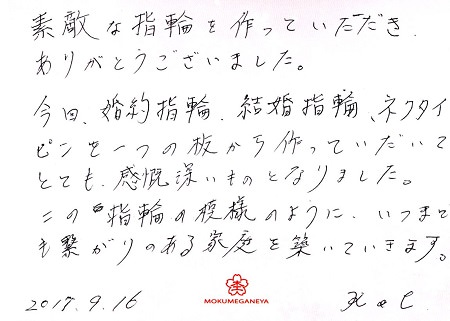 素敵な指輪を作っていただき
ありがとうございました。
今回、婚約指輪、結婚指輪、ネクタイ
ピンを一つの板から作っていだいて
とても、感慨深いものとなりました。
この指輪の模様のように、いつまで
も繋がりのある家庭を築いていきます。
2017.9.16
MOKUMEGANEYA
K & C